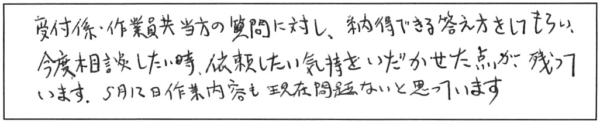 受付係・作業員共当方の質問に対し、納得できる答え方をしてもらい、
今度相談したい時、依頼したい気持をいだかせた点が、残って
います。5月12日作業内容も現在問題ないと思っています